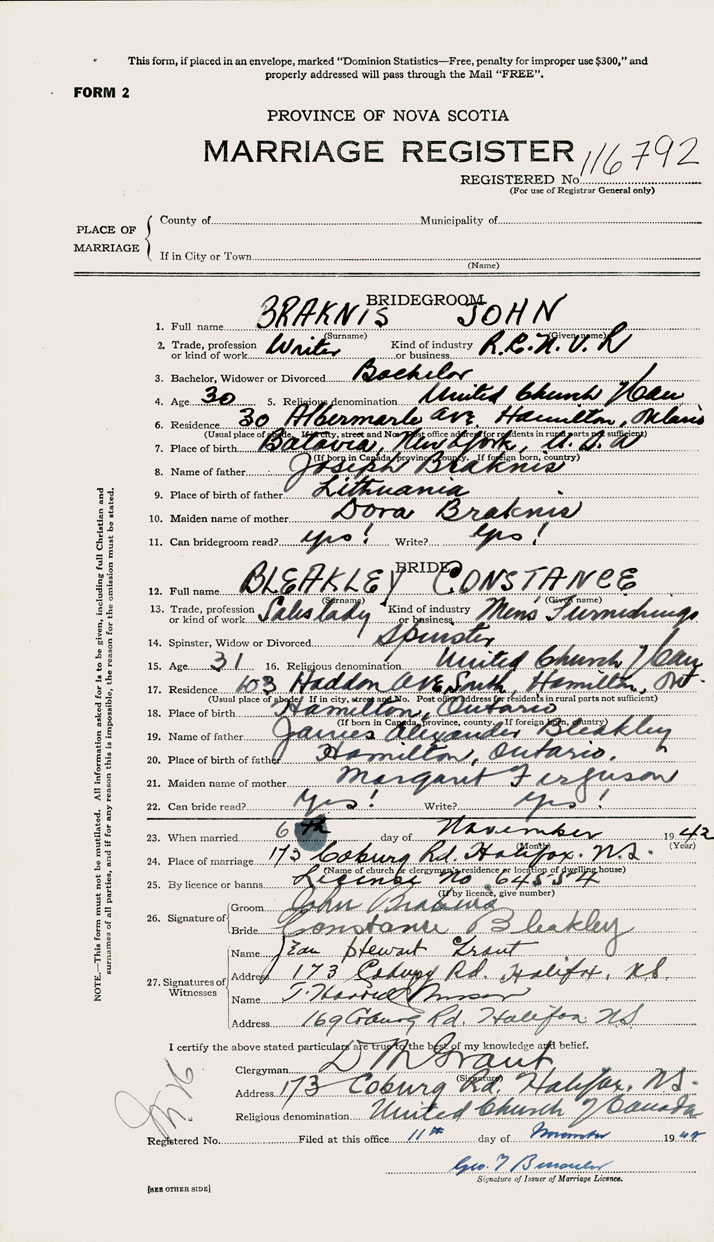 This form, if placed in an envelope, marked "Dominion Statistics—Free, penalty for improper use $300," and
properly addressed will pass through the Mail "FREE".
FORM 2
PROVINCE OF NOVA SCOTIA
MARRIAGE REGISTER
REGISTERED No. 116792
(For use of Registrar General only)
PLACE OF MARRIAGE
County of Municipality of
If in City or Town
(Name)
BRIDEGROOM
1. Full name BRAKNIS JOHN
(Surname) (Given name)
2. Trade, profession or kind of work Writer Kind of industry or business R.C.N.V.R
3. Bachelor, Widower or Divorced Bachelor
4. Age 30 5. Religious denomination United Church of Can
6. Residence 30 Albermarle Ave Hamilton,
(Usual place of abode. If in city, street and No. Post office address for residents in rural parts not sufficient)
7. Place of birth Batavia, New York, U.S.A
(If born in Canada, province, county. If foreign born, country)
8. Name of father Joseph Braknis
9. Place of birth of father Lithuania
10. Maiden name of mother Dora Braknis
11. Can bridegroom read? Yes! Write? Yes!
BRIDE
12. Full name BLEAKLEY CONSTANCE
(Surname) (Given name)
13. Trade, profession or kind of work Saleslady Kind of industry or business Men's Furnishings
14. Spinster, Widow or Divorced Spinster
15. Age 31 16. Religious denomination United Church of Can
17. Residence 103 Haddon Ave, South, Hamilton, Ont.
(Usual place of abode. If in city, street and No. Post office address for residents in rural parts not sufficient)
18. Place of birth Hamilton, Ontario
(If born in Canada, province, county. If foreign born, country)
19. Name of father James Alexander Bleakley
20. Place of birth of father Hamilton, Ontario,
21. Maiden name of mother Margaret Ferguson
22. Can bride read? Yes! Write? Yes!
23. When married 6th day of November 1942
(Month) (Year)
24. Place of marriage 173 Coburg Rd. Halifax. N.S.
(Name of church or clergyman's residence or location of dwelling house)
25. By licence or banns License No. 64554
(If by licence, give number)
26. Signature of
Groom John Braknis
Bride Constance Bleakley
27. Signatures of Witnesses
Name Jean Stewart Grant
Address 173 Coburg Rd. Halifax, N.S.
Name T.
Address 169 Coburg Rd. Halifax N.S.
I certify the above stated particulars are true to the best of my knowledge and belief.
Clergyman D M Grant
(Signature)
Address 173 Coburg Rd. Halifax. N.S.
Religious denomination United Church of Canada
Registered No. Filed at this office 11th day of November 1942
Geo. T
Signature of Issuer of Marriage Licence.
[SEE OTHER SIDE]
NOTE.—This form must not be mutilated. All information asked for is to be given, including full Christian and
surnames of all parties, and if for any reason this is impossible, the reason for the omission must be stated.